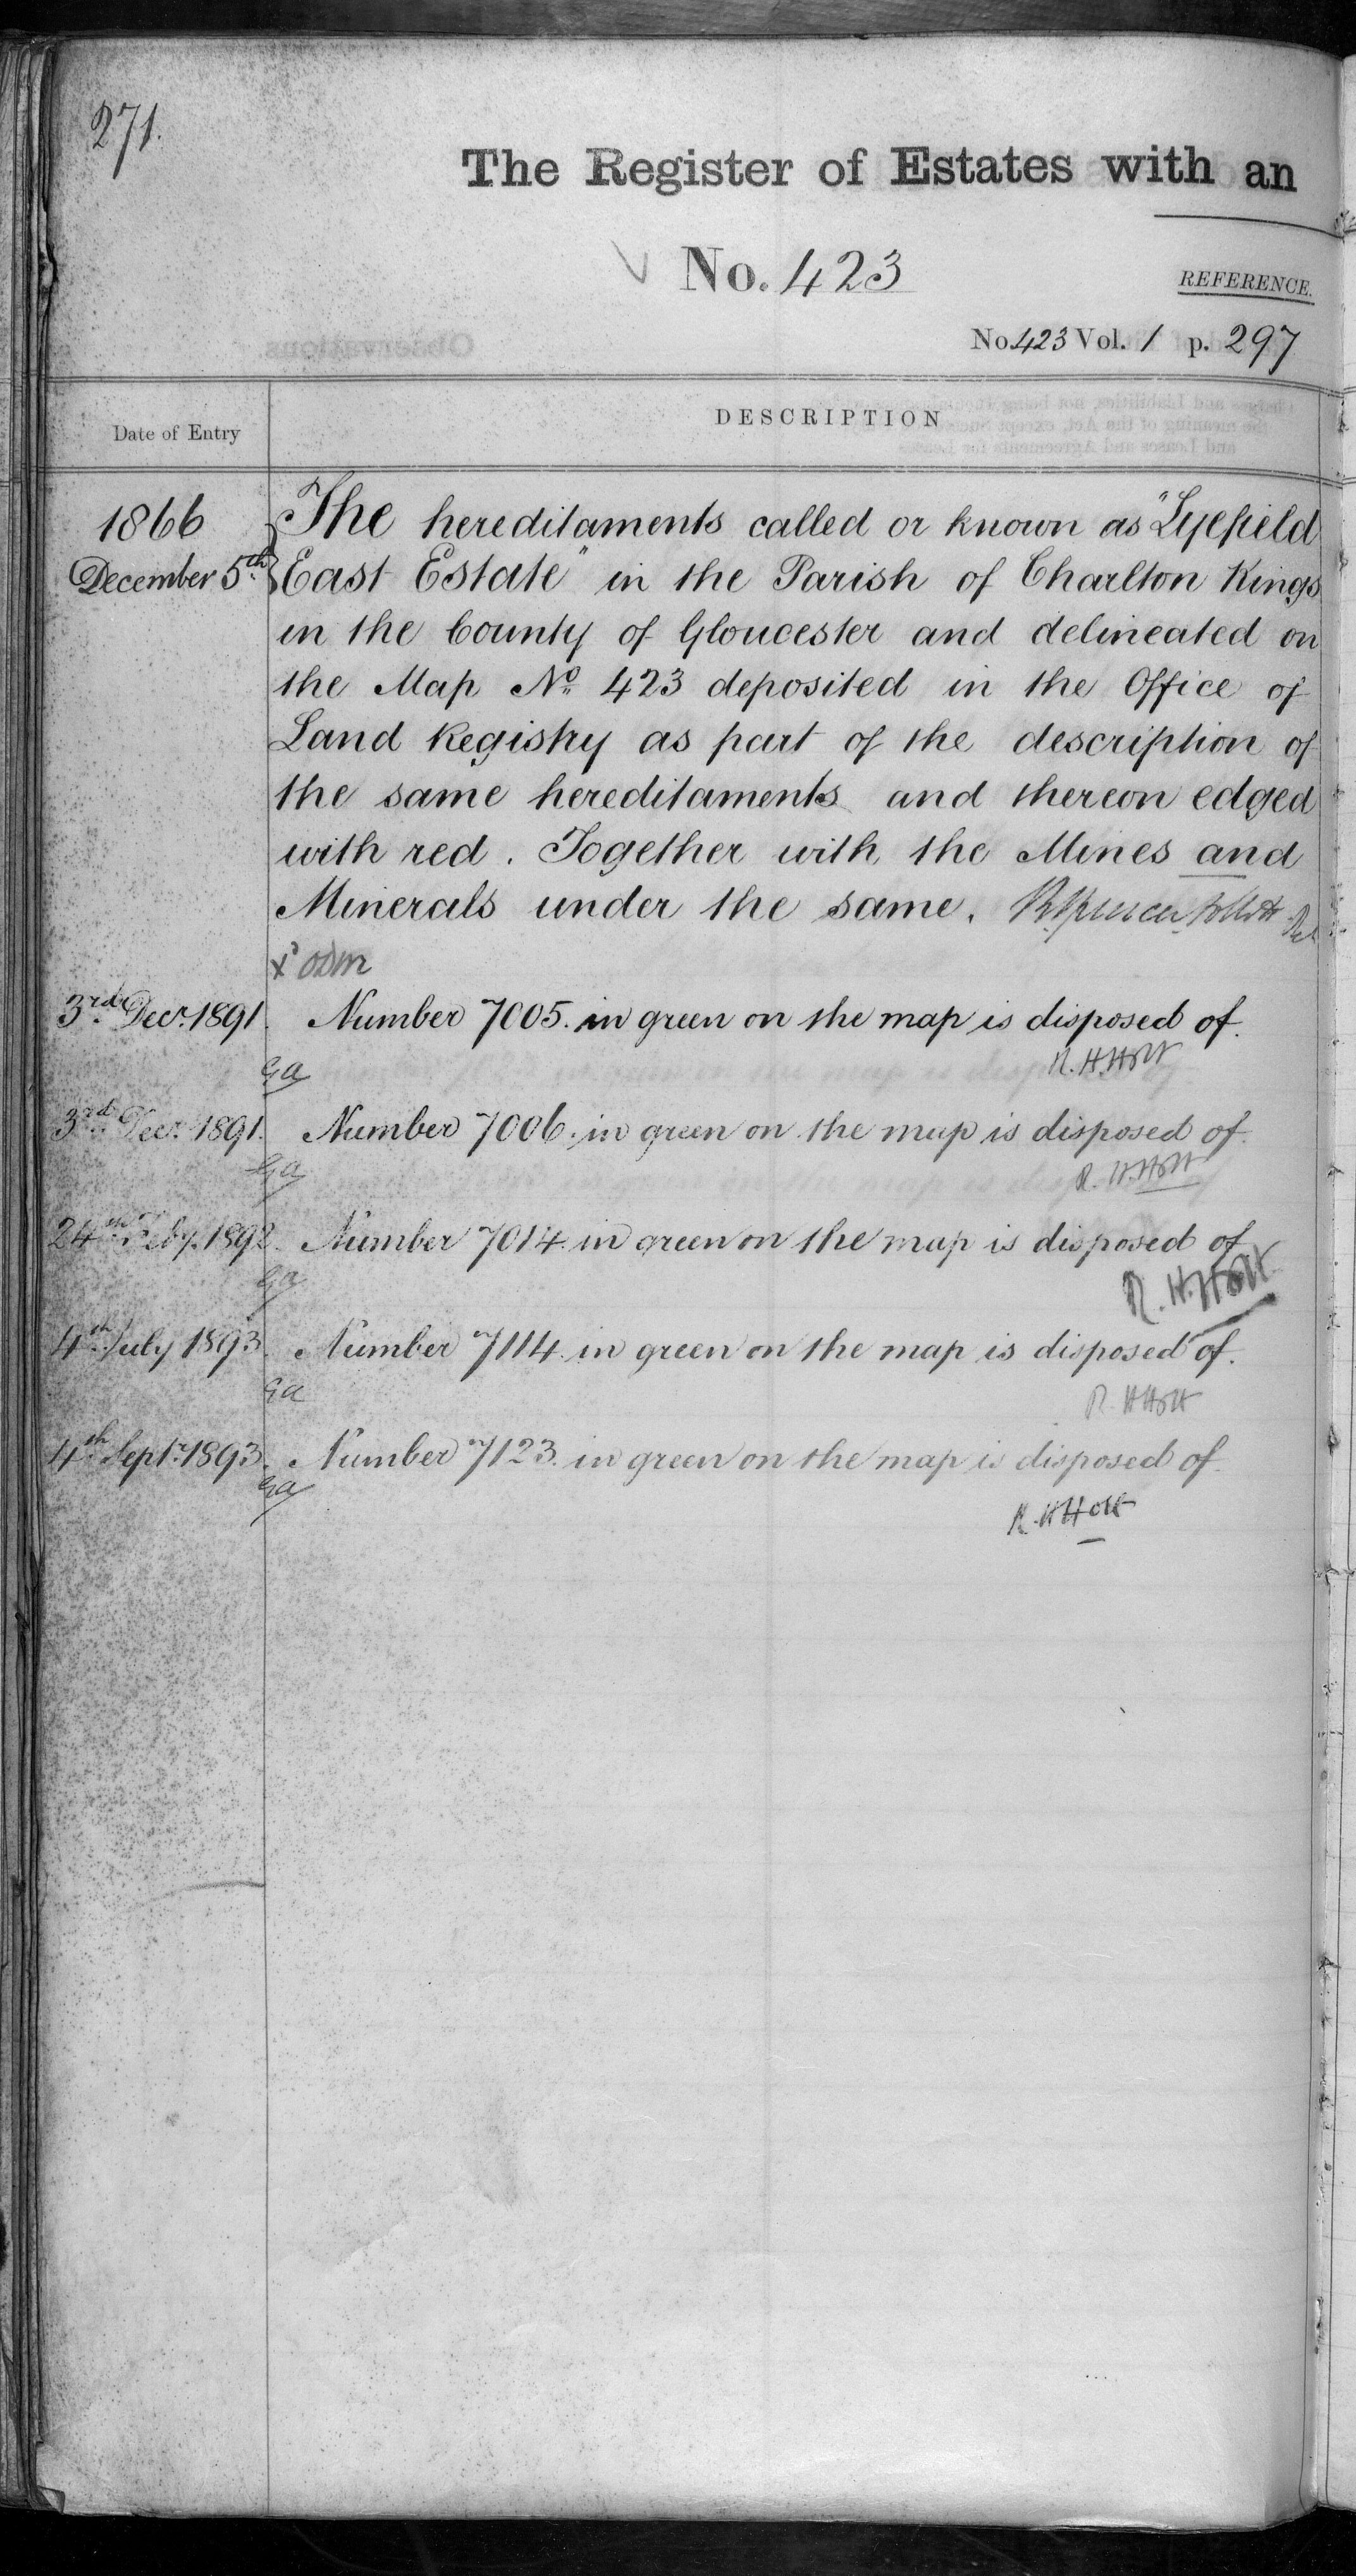 271.
The Register of Estates with an
No. 423
REFERENCE.
No 423 Vol. 1 p. 297
Date of Entry
DESCRIPTION
1866
December 5th
The hereditaments called or known as "Lyefield
East Estate" in the Parish of Charlton Kings
in the County of Gloucester and delineated on
the Map No. 423 deposited in the Office of
Land Registry as part of the description of
the same hereditaments and thereon edged
with red. Together with the Mines and
Minerals under the same.
3rd Decr. 1891. Number 7005. in green on the map is disposed of.
Ga R. H. Holt
3rd Decr. 1891. Number 7006. in green on the map is disposed of.
Ga R. H. Holt
24th Feby. 1892. Number 7014. in green on the map is disposed of
Ga R. H. Holt
4th July 1893. Number 7114. in green on the map is disposed of.
Ga R. H Holt
4th Septr. 1893. Number 7123. in green on the map is disposed of.
Ga R. H Holt